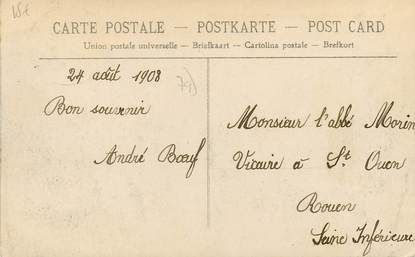 CARTE POSTALE — POSTKARTE — POST CARD
Union postale universelle — Briefkaart — Cartolina postale — Brefkort
24 août 1908
Bon souvenir
André Bœuf
Monsieur l'abbé Morin
Vicaire à St. Ouen
Rouen
Seine Inférieure